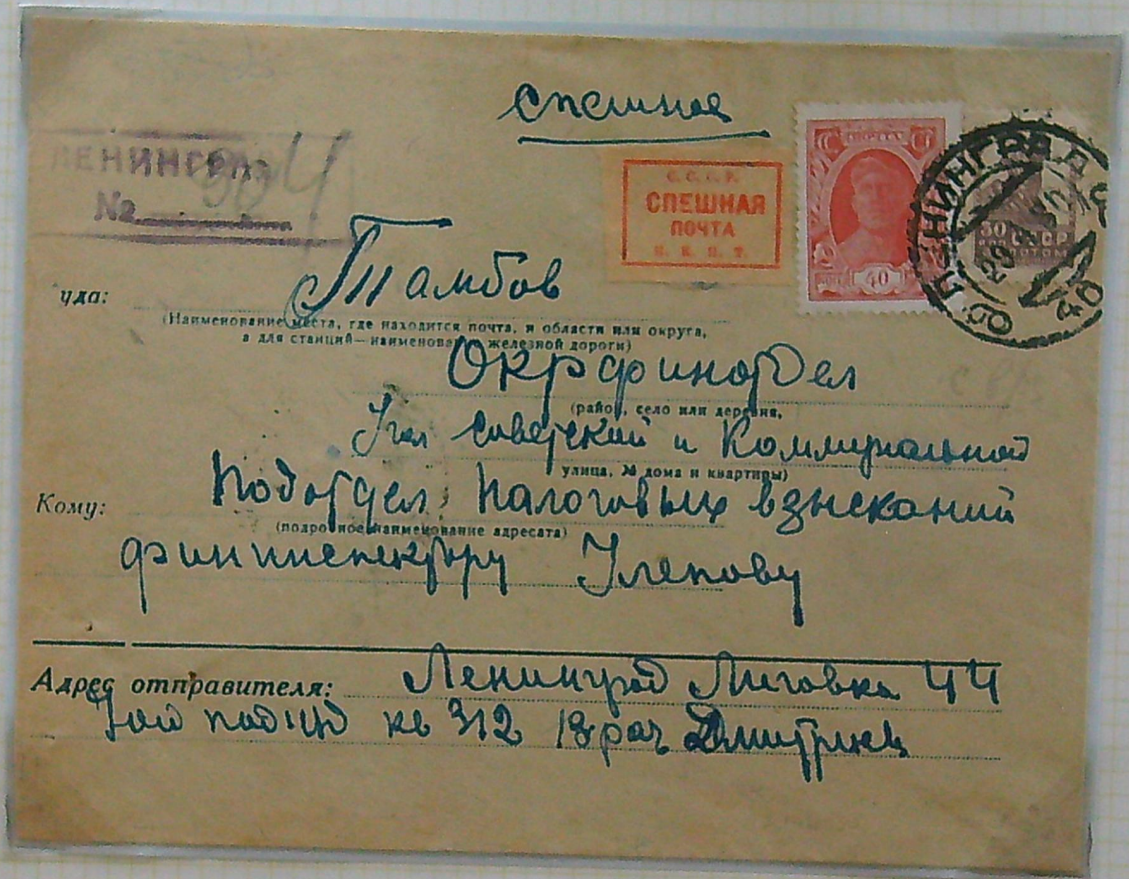 спешное
ЛЕНИНГРАД
№
С.С.С.Р.
СПЕШНАЯ
ПОЧТА
Н.К.П.Т.
ПОЧТА
40
50
СССР
ЛЕНИНГРАД
уда: Тамбов
(Наименование места, где находится почта, и области или округа,
а для станций—наименование железной дороги)
Окрфинотдел
(район, село или деревня,
Угол Советской и Коммунальной
улица, № дома и квартиры)
Кому: Подотдел, налоговых взысканий
(подробное наименование адресата)
фининспектору
Адрес отправителя: Ленинград Лиговка 44
кв 312 Врач